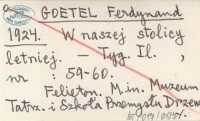 GOETEL Ferdynand
1924. W naszej stolicy
letniej. – Tyg. Il.,
nr : 59-60.
Felieton. M.in. Muzeum
Tatrz. i Szkoła Przemysłu Drzew.